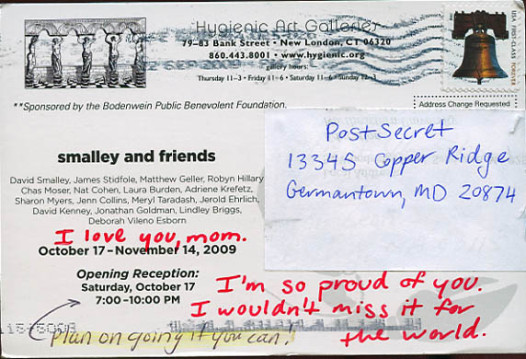 Hygienic Art Galleries
79-83 Bank Street • New London, CT 06320
860.443.8001 • www.hygienic.org
gallery hours:
Thursday 11-3 • Friday 11-6 • Saturday 11-6 • Sunday 12-3
USA FIRST-CLASS FOREVER
**Sponsored by the Bodenwein Public Benevolent Foundation.
Address Change Requested
PostSecret
13345 Copper Ridge
Germantown, MD 20874
smalley and friends
David Smalley, James Stidfole, Matthew Geller, Robyn Hillary
Chas Moser, Nat Cohen, Laura Burden, Adriene Krefetz,
Sharon Myers, Jenn Collins, Meryl Taradash, Jerold Ehrlich,
David Kenney, Jonathan Goldman, Lindley Briggs,
Deborah Vileno Esborn
I love you, mom.
October 17 – November 14, 2009
Opening Reception:
Saturday, October 17
7:00 -10:00 PM
I'm so proud of you.
I wouldn't miss it for
the world.
Plan on going if you can!